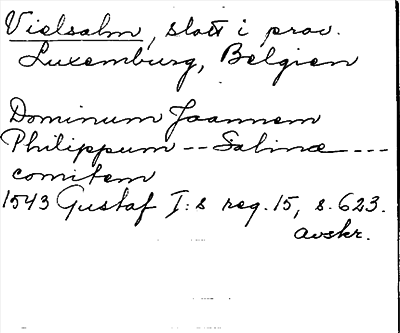 Vielsalm, slott i prov.
Luxemburg, Belgien
Dominum Joannem
Philippum -- Salmæ ---
comitem
1543 Gustaf I:s reg. 15, s. 623.
avskr.